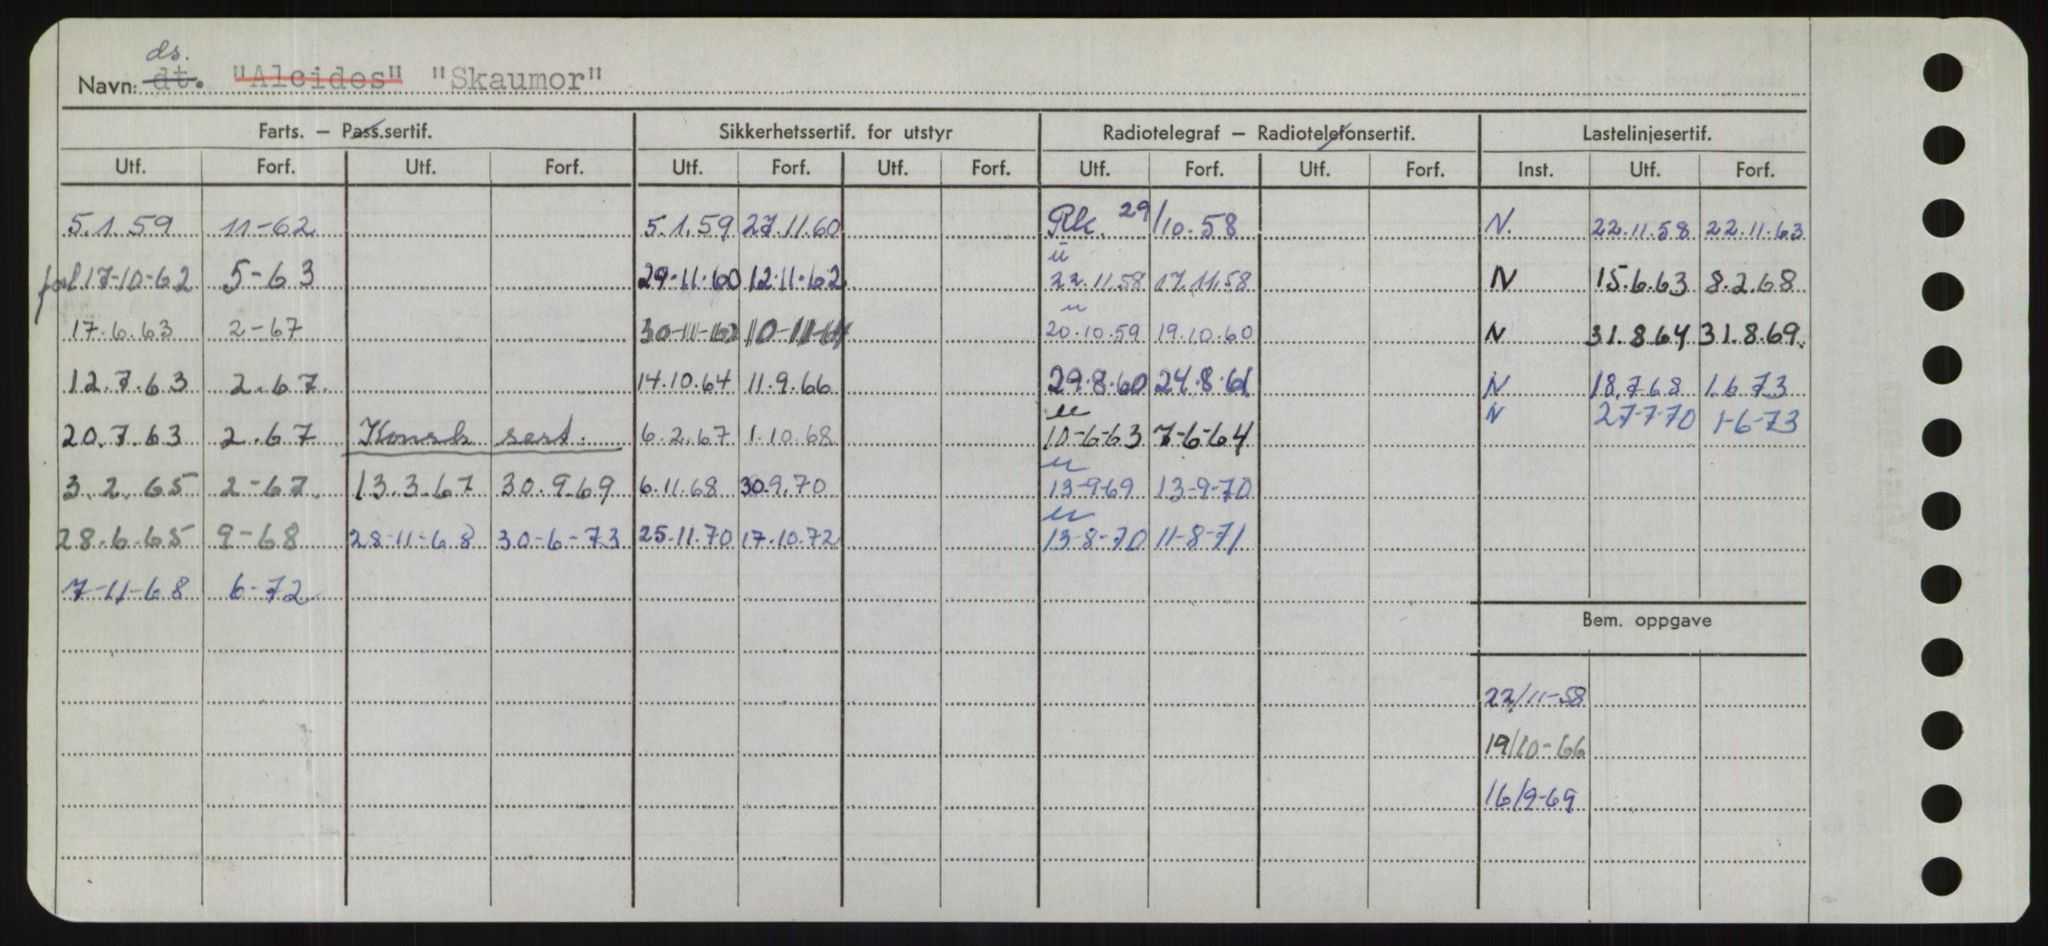 ds.
Navn: dt. "Alcides" "Skaumor"
Farts. — Pass.sertif. Sikkerhetssertif. for utstyr Radiotelegraf — Radiotelefonsertif. Lastelinjesertif.
Utf. Forf. Utf. Forf. Utf. Forf. Utf. Forf. Utf. Forf. Utf. Forf. Inst. Utf. Forf.
5.1.59 11-62 5.1.59 27.11.60 Rk. 29/10.58 N. 22.11.58 22.11.63
forl 17-10-62 5-63 29.11.60 12.11.62 22.11.58 17.11.58 N 15.6.63 8.2.68
17.6.63 2-67 30-11-62 10-11-64 20.10.59 19.10.60 N 31.8.64 31.8.69.
12.7.63 2.67. 14.10.64 11.9.66 29.8.60 24.8.61 N 18.7.68 1.6.73
N 27-7-70 1-6-73
20.7.63 2.67 Konsk sert. 6.2.67 1.10.68 10-6-63 7-6-64
3.2.65 2-67. 13.3.67 30.9.69 6.11.68 30.9.70 13-9-69 13-9-70
28.6.65 9-68 28-11-68 30-6-73 25.11.70 17.10.72 13-8-70 11-8-71
7-11-68 6-72
Bem. oppgave
22/11-58
19/10-66
16/9-69